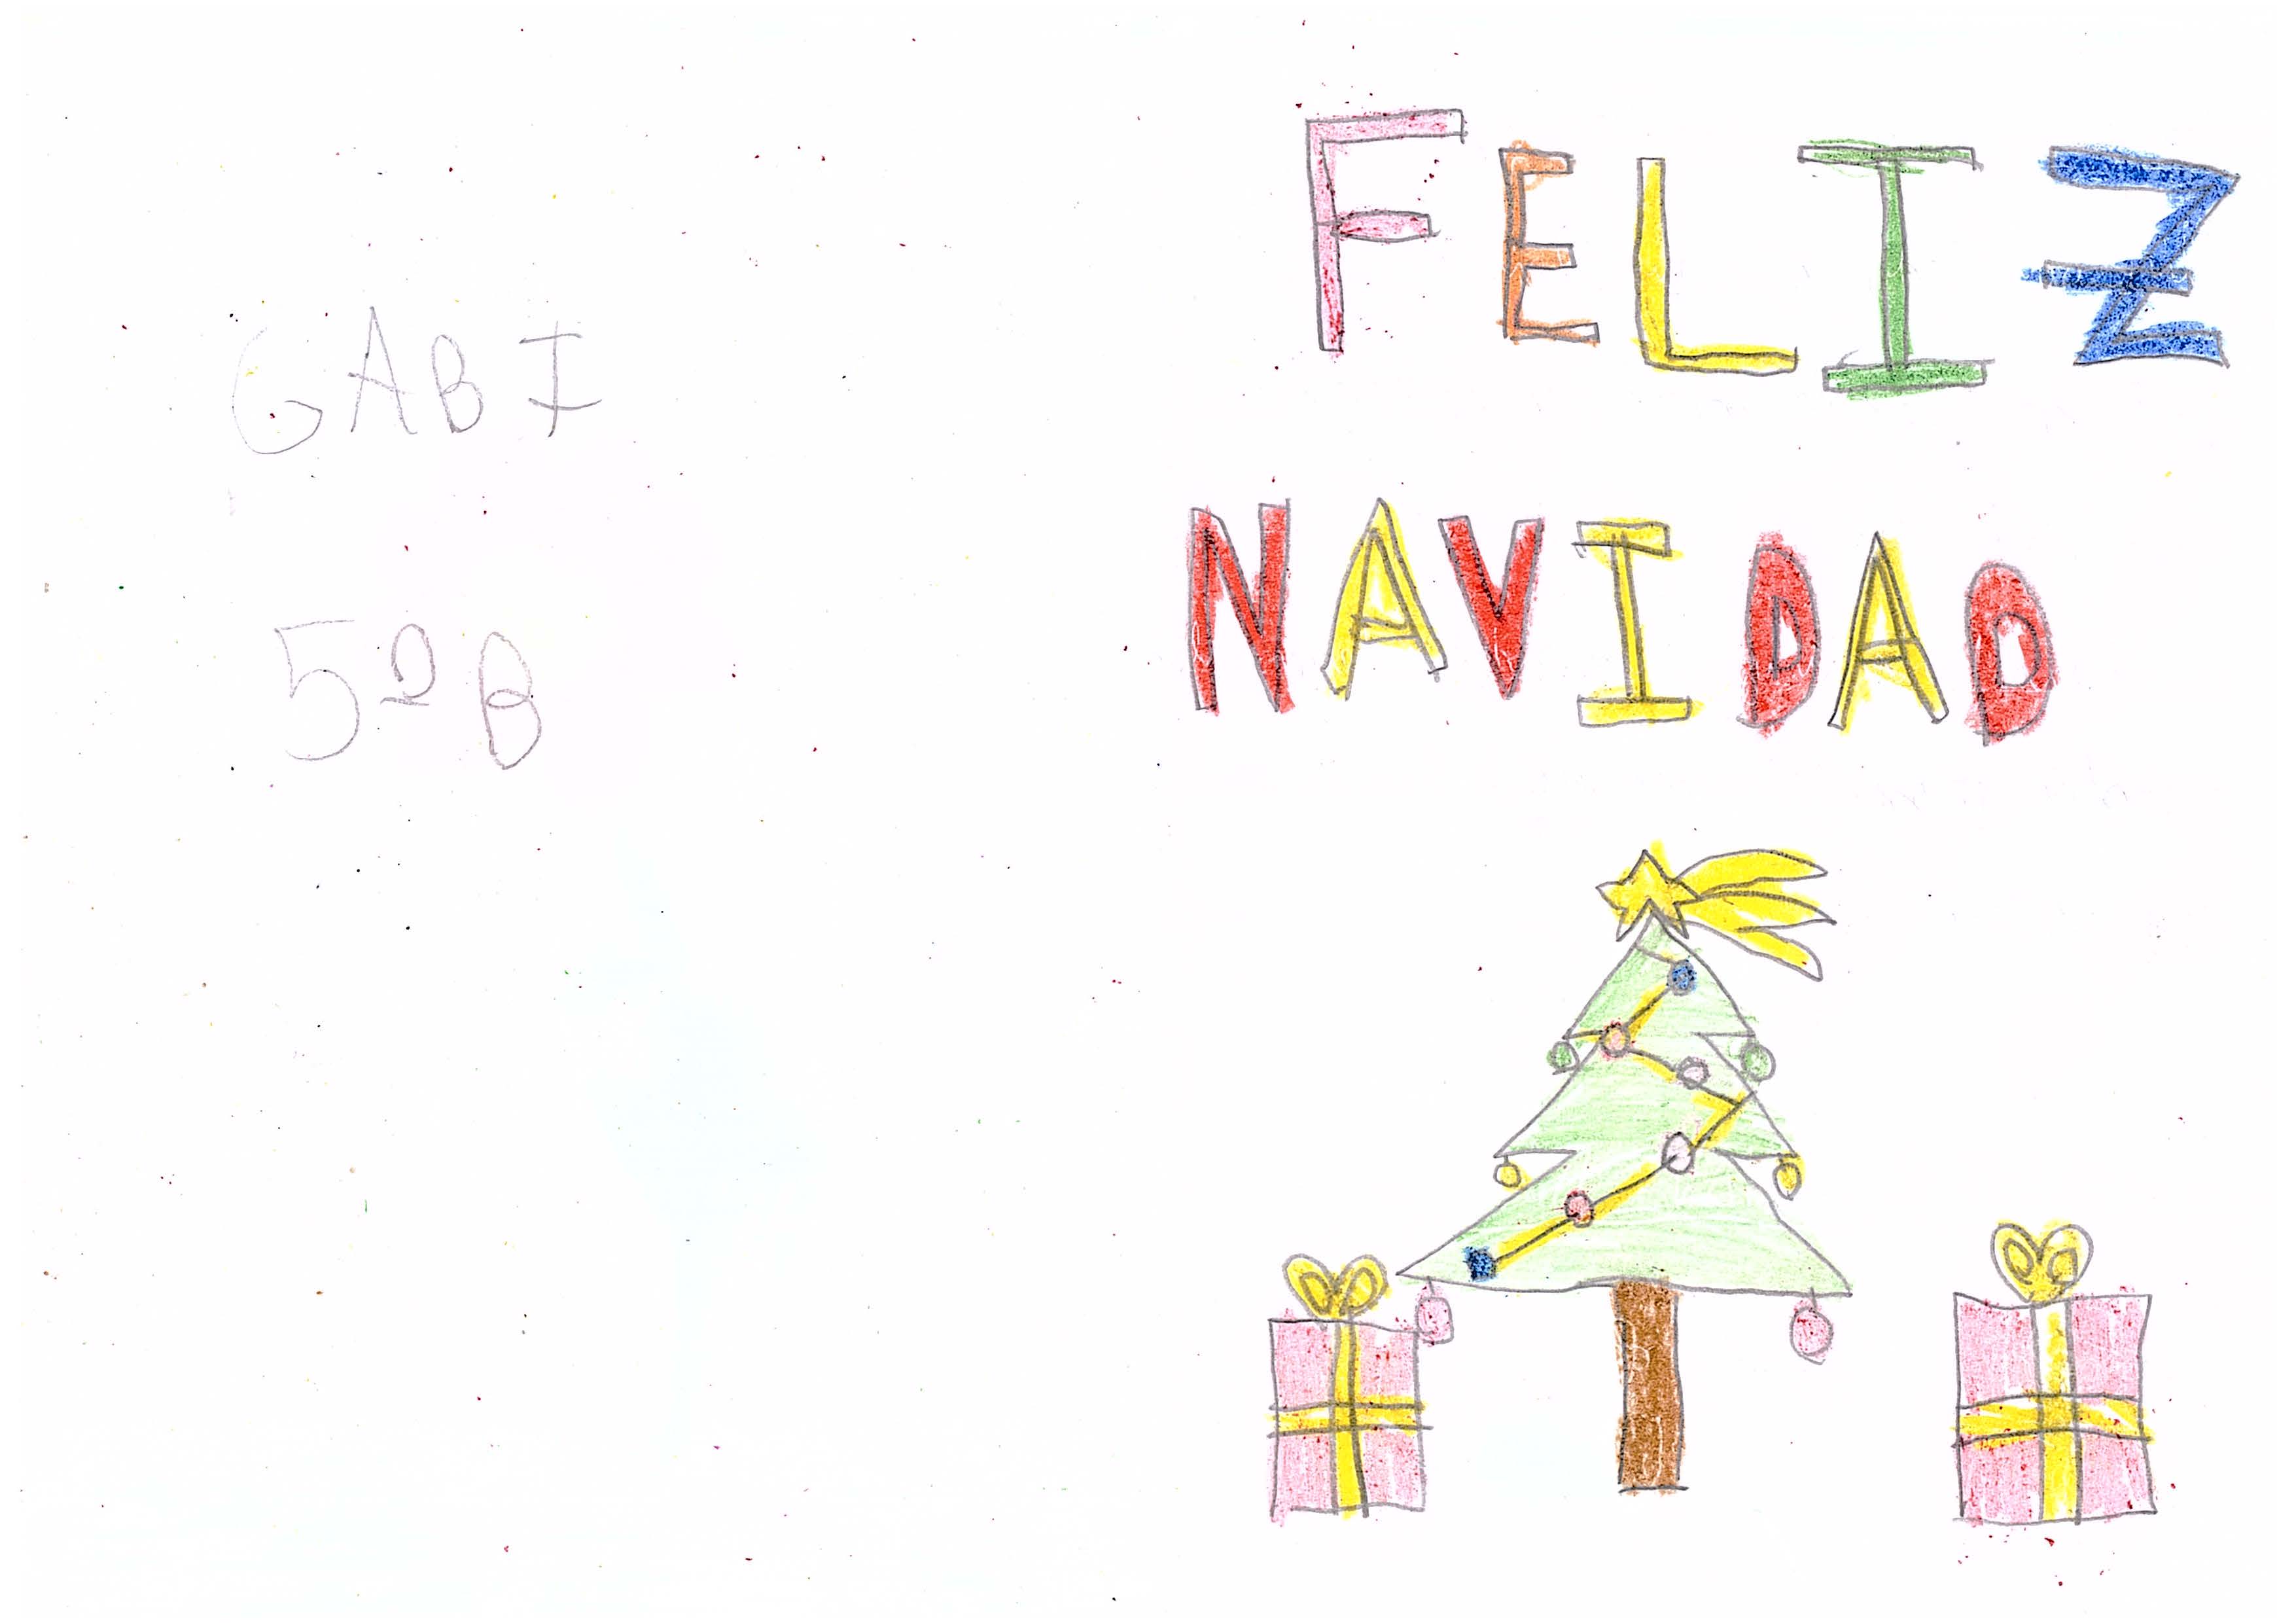 GABI
5º B
FELIZ
NAVIDAD